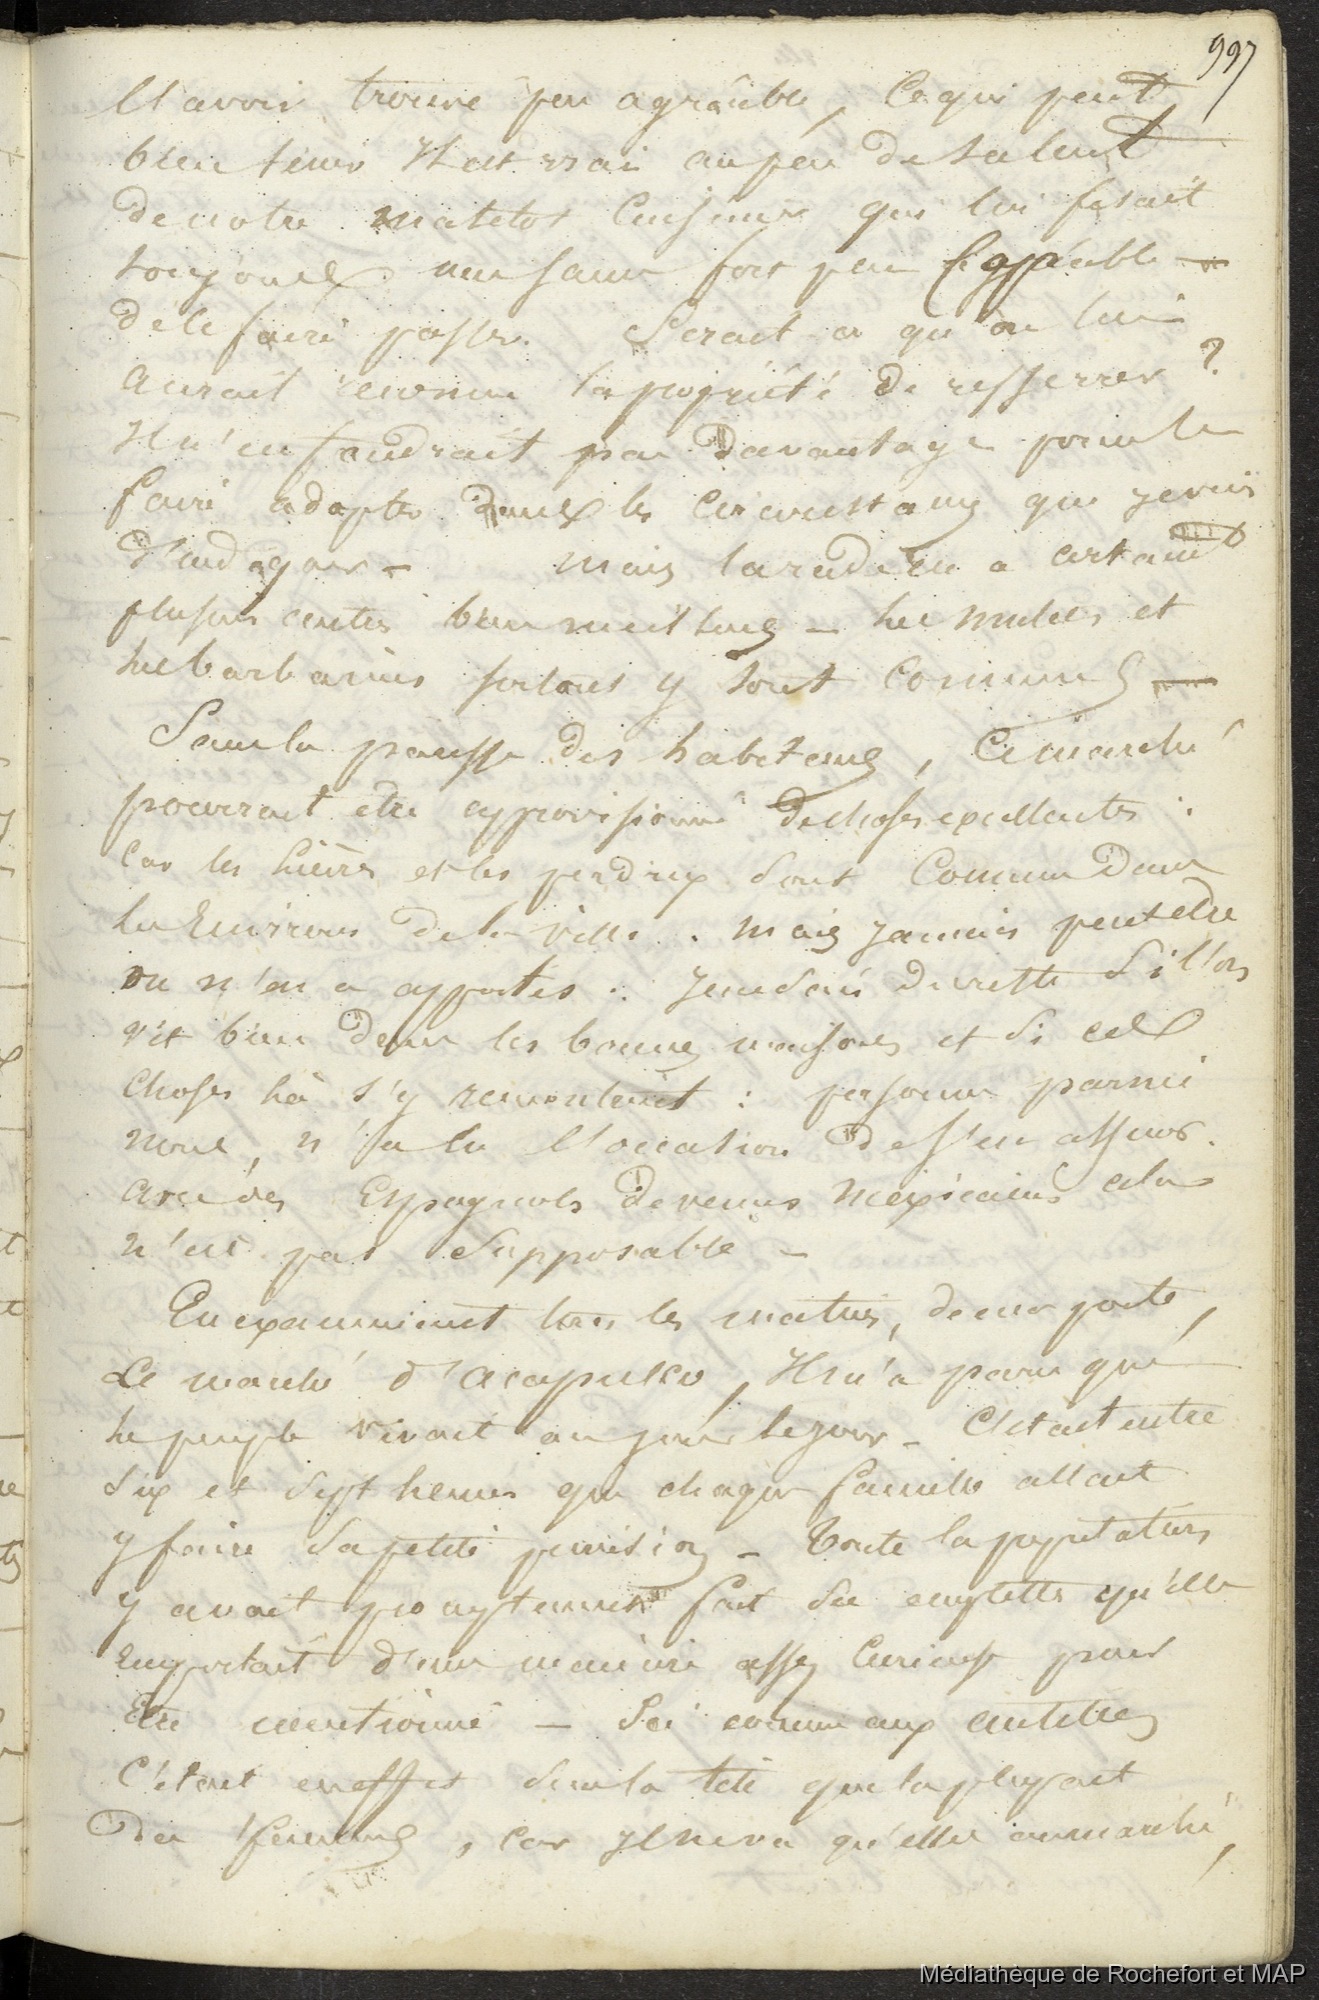 997
l'avoir trouvé peu agréable, ce qui peut
bien tenir il est vrai au peu de talent
de notre matelot cuisinier qui lui fesait
toujours une sauce fort peu capable —
de le faire passer. Serait ce qu'on lui
aurait reconnu la propriété de resserrer ?
Il n'en faudrait pas davantage pour le
faire adopter dans les circonstances que je viens
d'indiquer — mais la rade en a certaint
plusieurs autres bien meilleurs — les mulets et
les barbarins surtout y sont communs —
Sans la paresse des habitans, ce marché
pourrait être approvisionné de choses excellentes :
car les lièvres et les perdrix sont commun dans
les environs de la ville. mais jamais peutetre
on n'en a apportés : je ne sais du reste si l'on
vit bien dans les bonnes maisons et si ces
choses là s'y rencontrent : personne parmi
nous, n'a eu l'occasion de s'en assurer.
avec des Espagnols devenus mexicains cela
n'est pas supposable —
En examinant tous les matins, de ma porte,
le marché d'acapulco, il m'a paru que
le peuple vivait au jour le jour — C'était entre
six et sept heures que chaque famille allait
y faire sa petite provision — Toute la population
y avait promptement fait ses emplettes qu'elle
emportait d'une manière assez curieuse pour
être mentionné — Ici comme aux antilles
c'était en effet sur la tête que la plupart
des femmes, car je n'ai vu qu'elles au marché,
Médiathèque de Rochefort et MAP